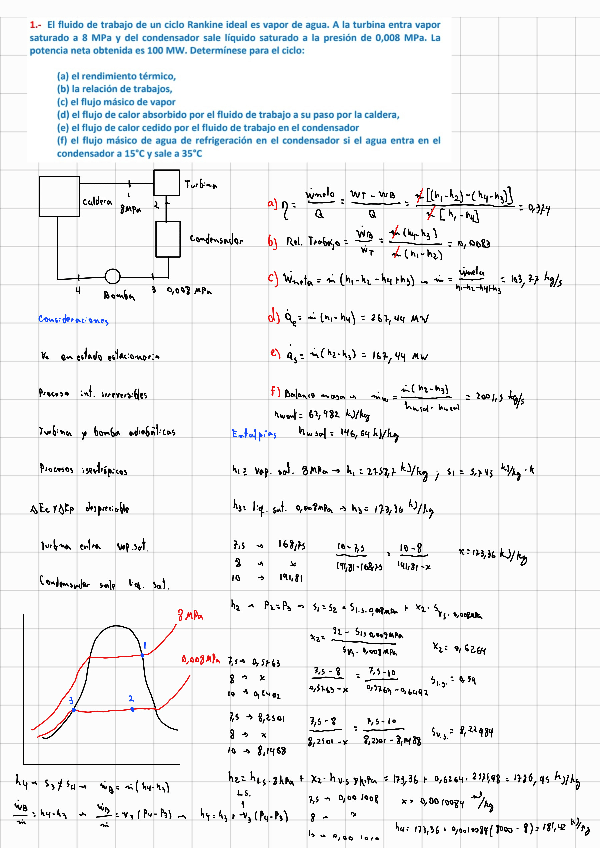 1.- El fluido de trabajo de un ciclo Rankine ideal es vapor de agua. A la turbina entra vapor
saturado a 8 MPa y del condensador sale líquido saturado a la presión de 0,008 MPa. La
potencia neta obtenida es 100 MW. Determínese para el ciclo:
(a) el rendimiento térmico,
(b) la relación de trabajos,
(c) el flujo másico de vapor
(d) el flujo de calor absorbido por el fluido de trabajo a su paso por la caldera,
(e) el flujo de calor cedido por el fluido de trabajo en el condensador
(f) el flujo másico de agua de refrigeración en el condensador si el agua entra en el
condensador a 15°C y sale a 35°C
Caldera
1
8MPa
Turbina
2
Condensador
4
Bomba
3
0,008 MPa
a) η = Ẇneta / Q = WT - WB / Q = ṁ[(h1-h2)-(h4-h3)] / ṁ[h1-h4] = 0,374
b) Rel. Trabajo = ẆB / ẆT = ṁ(h4-h3) / ṁ(h1-h2) = 0,0083
c) Ẇneta = ṁ(h1-h2-h4+h3) → ṁ = Ẇneta / h1-h2-h4+h3 = 103,77 kg/s
d) Q̇e = ṁ(h1-h4) = 267,44 MW
e) Q̇s = ṁ(h2-h3) = 167,44 MW
f) Balance masa → ṁw = ṁ(h2-h3) / hwsal - hwent = 2001,5 kg/s
hwent = 62,982 kJ/kg
hwsal = 146,64 kJ/kg
Consideraciones
Vc en estado estacionario
Proceso int. irreversibles
Turbina y bomba adiabáticas
Procesos isentrópicos
ΔEc y ΔEp despreciable
Turbina entra vap. sat.
Condensador sale liq. sat.
Entalpías
h1 = vap. sat. 8MPa → h1 = 2757,7 kJ/kg ; s1 = 5,745 kJ/kg·K
h3 = liq. sat. 0,008MPa → h3 = 173,36 kJ/kg
7,5 → 168,75
8 → x
10 → 191,81
10-7,5 / 191,81-168,75 = 10-8 / 191,81-x
x = 173,36 kJ/kg
h2 → P2 = P3 → s1 = s2 = sl.s. 0,008MPa + x2 · sv.s. 0,008MPa
x2 = s2 - sl.s 0,008MPa / sv.s. 0,008MPa
x2 = 0,6264
7,5 → 0,5763
8 → x
10 → 0,6492
7,5-8 / 0,5763-x = 7,5-10 / 0,5763-0,6492
sl.s. = 0,59
7,5 → 8,2501
8 → x
10 → 8,1488
7,5-8 / 8,2501-x = 7,5-10 / 8,2501-8,1488
sv.s. = 8,22984
8 MPa
0,008 MPa
1
2
3
h2 = hl.s. 8kPa + x2 · hv.s 8kPa = 173,36 + 0,6264 · = 1786,95 kJ/kg
h4 → s3 ≠ s4 → ẆB = ṁ(h4-h3)
ẆB / ṁ = h4-h3 → ẆB / ṁ = v3(P4-P3) → h4 = h3 + v3(P4-P3)
L.S.
7,5 → 0,001008
8 → x
10 → 0,001010
x = 0,0010084
h4 = 173,36 + 0,0010084(8000-8) = 181,42 kJ/kg